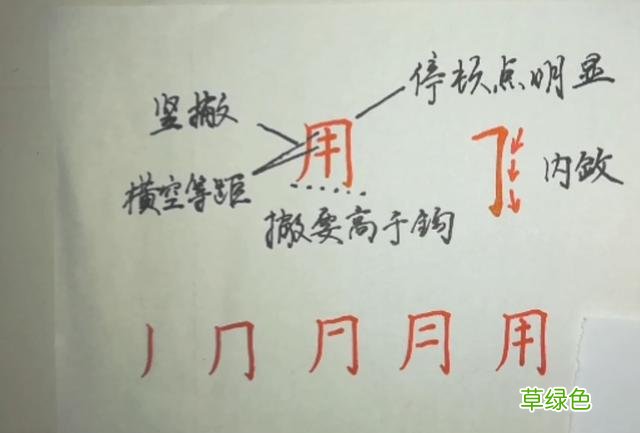 停顿点明显
竖撇
用
横空等距
内敛
撇要高于钩
丿 ⺆ 月 用
草绿色